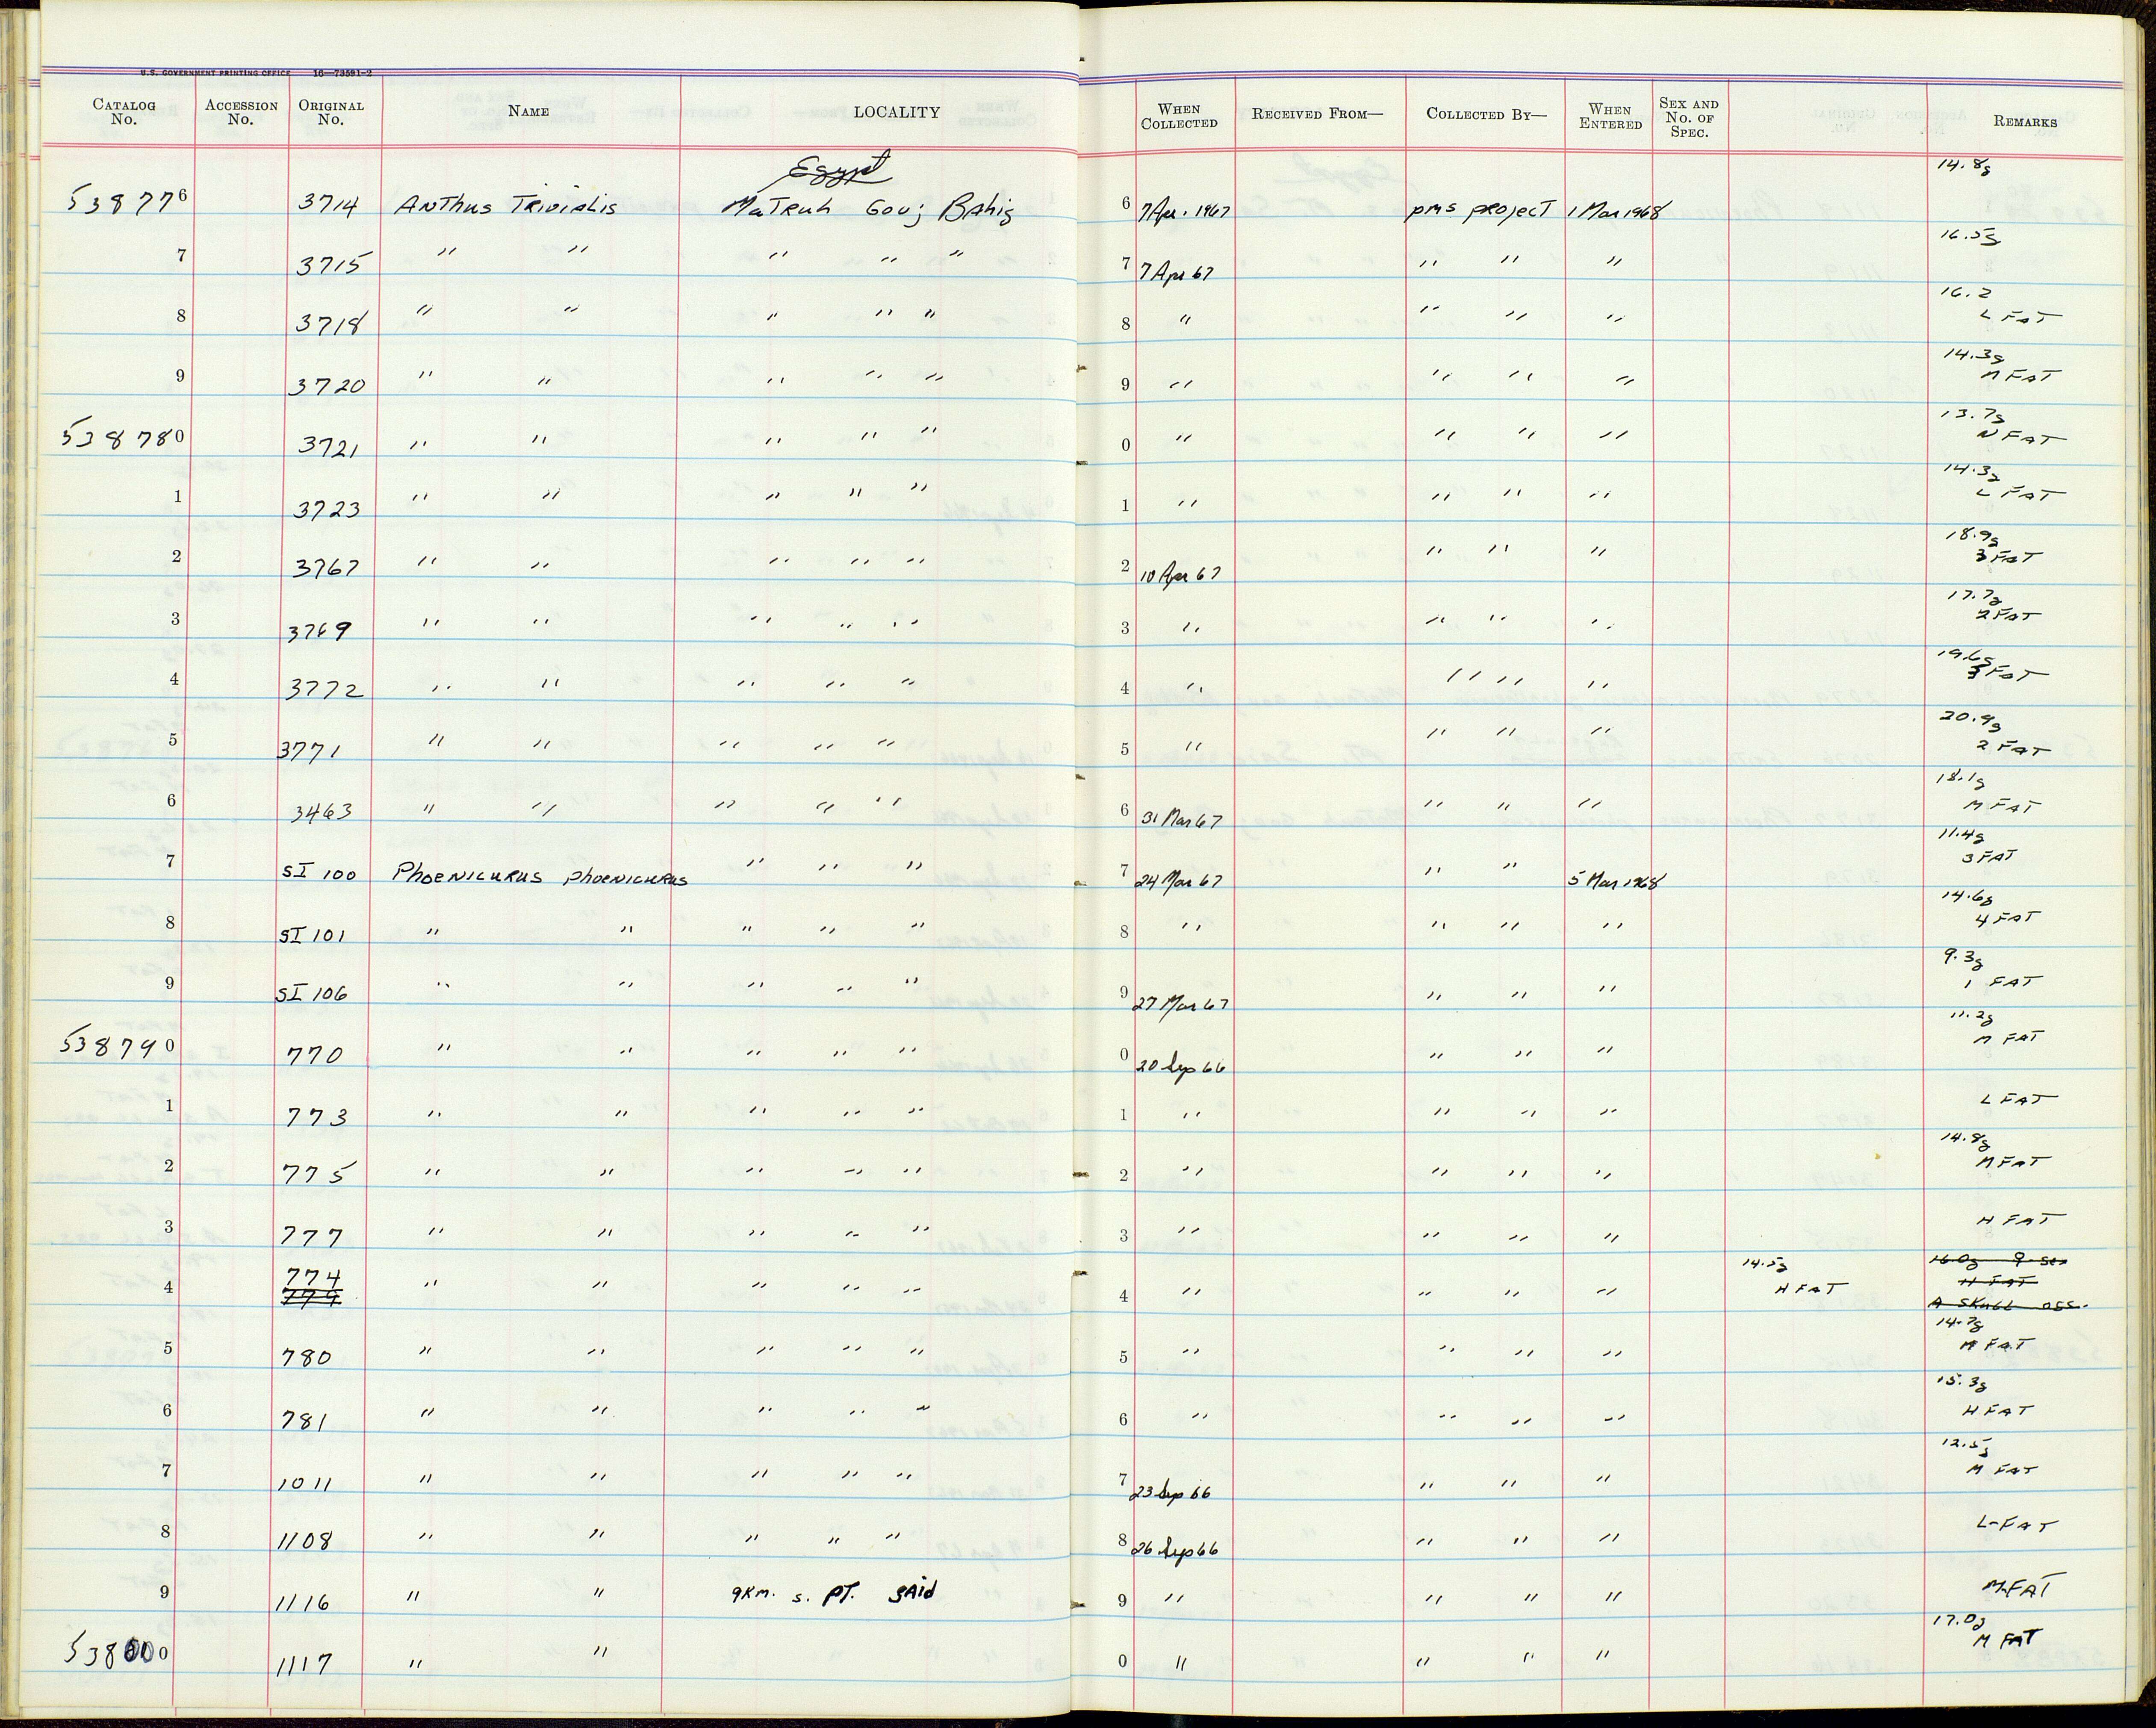 U.S. GOVERNMENT PRINTING OFFICE 16—73591-2
CATALOG No. ACCESSION No. ORIGINAL No. NAME LOCALITY WHEN COLLECTED RECEIVED FROM— COLLECTED BY— WHEN ENTERED SEX AND No. OF SPEC. REMARKS
Egypt 14.8g
538776 3714 Anthus Trivialis Matruh Gov; Bahig 6 7 Apr. 1967 PMS project 1 Mar 1968
16.5g
7 3715 " " " " " 7 7 Apr 67 " " "
16.2
8 3718 " " " " " 8 " " " " L FAT
14.3g
9 3720 " " " " " 9 " " " " M FAT
13.7g
538780 3721 " " " " " 0 " " " " N FAT
14.3g
1 3723 " " " " " 1 " " " " L FAT
18.9g
2 3767 " " " " " 2 10 Apr 67 " " " 3 FAT
17.7g
3 3769 " " " " " 3 " " " " 2 FAT
19.6g
4 3772 " " " " " 4 " " " " 3 FAT
20.9g
5 3771 " " " " " 5 " " " " 2 FAT
18.1g
6 3463 " " " " " 6 31 Mar 67 " " " M FAT
11.4g
7 SI 100 Phoenicurus phoenicurus " " " 7 24 Mar 67 " " 5 Mar 1968 3 FAT
14.6g
8 SI 101 " " " " " 8 " " " " 4 FAT
9.3g
9 SI 106 " " " " " 9 27 Mar 67 " " " 1 FAT
11.2g
538790 770 " " " " " 0 20 Sep 66 " " " M FAT
1 773 " " " " " 1 " " " " L FAT
14.8g
2 775 " " " " " 2 " " " " M FAT
3 777 " " " " " 3 " " " " H FAT
774 14.5g 16.0g ♀ sex
4 779 " " " " " 4 " " " " H FAT H FAT
A SKULL OSS.
14.7g
5 780 " " " " " 5 " " " " M FAT
15.3g
6 781 " " " " " 6 " " " " H FAT
12.5g
7 1011 " " " " " 7 23 Sep 66 " " " M FAT
8 1108 " " " " " 8 26 Sep 66 " " " L-FAT
9 1116 " " 9KM. S. PT. SAID 9 " " " " M-FAT
17.0g
538800 1117 " " 0 " " " " M FAT